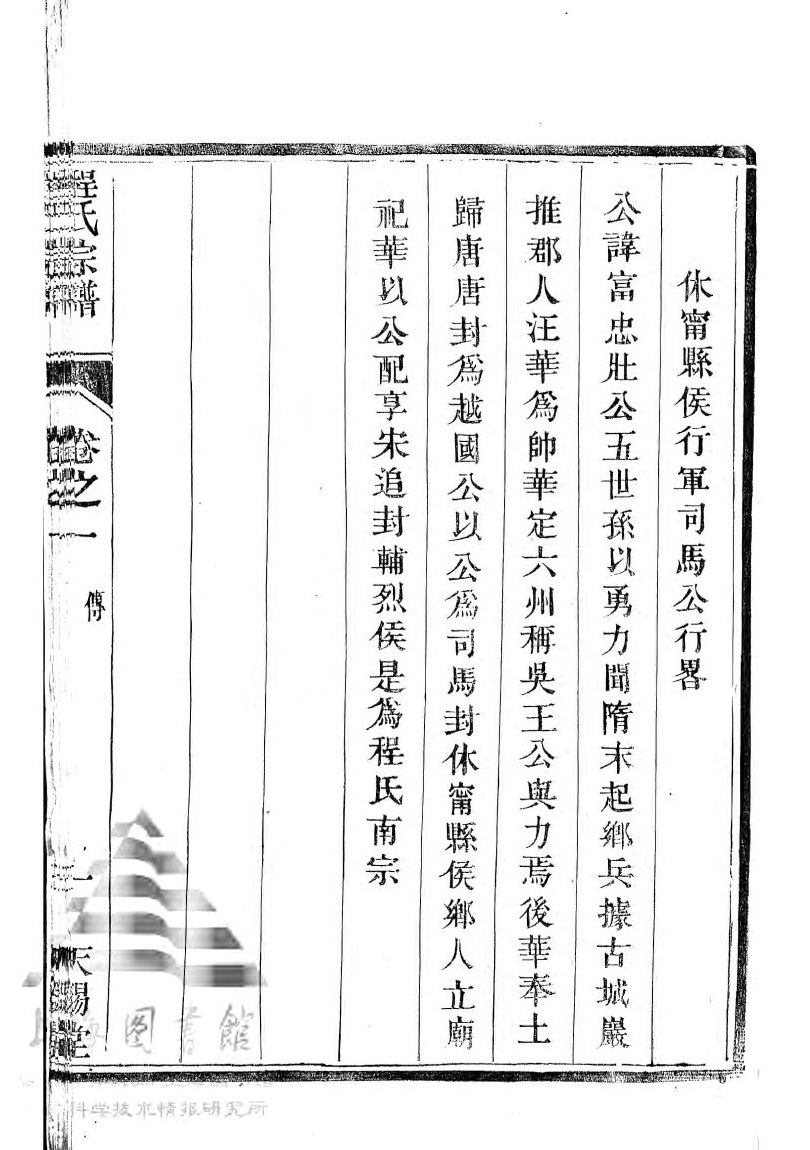 休甯縣侯行軍司馬公行畧
公諱富忠壯公五世孫以勇力聞隋末起鄉兵據古城巖
推郡人汪華爲帥華定六州稱吳王公與力焉後華奉土
歸唐唐封爲越國公以公爲司馬封休甯縣侯鄉人立廟
祀華以公配享宋追封輔烈侯是爲程氏南宗
程氏宗譜
卷之一
傳
一
天錫堂
圖書館
科学技术情报研究所